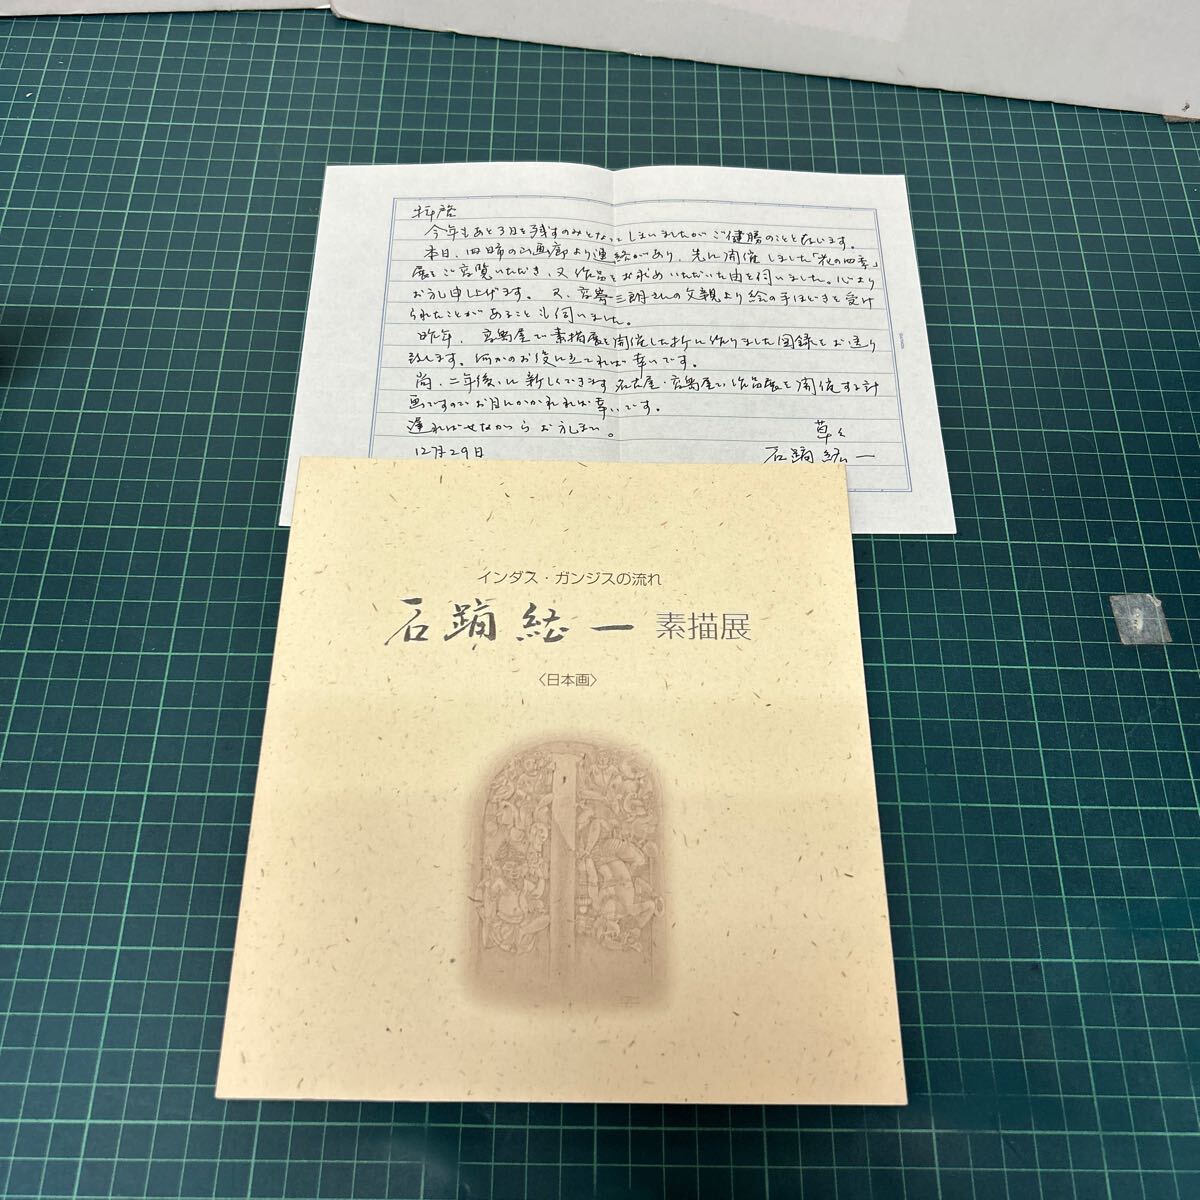 拝啓
今年もあと3日を残すのみとなってしまいましたがご健勝のことと存じます。
本日、四日市の画廊より連絡があり、先に開催しました「花の四季」
展をご高覧いただき、又作品をお求めいただいた由を伺いました。心より
お礼申し上げます。又、三朗さんの父親より絵の手ほどきを受け
られたことがあることも伺いました。
昨年、高島屋で素描展を開催した折に作りました図録をお送り
致します。何かのお役に立てれば幸いです。
尚、二年後に新しくできます名古屋・高島屋で作品展を開催する計
画ですのでお目にかかれれば幸いです。
遅ればせながらお礼まで。
草々
12月29日
石踊紘一
インダス・ガンジスの流れ
石踊紘一 素描展
〈日本画〉